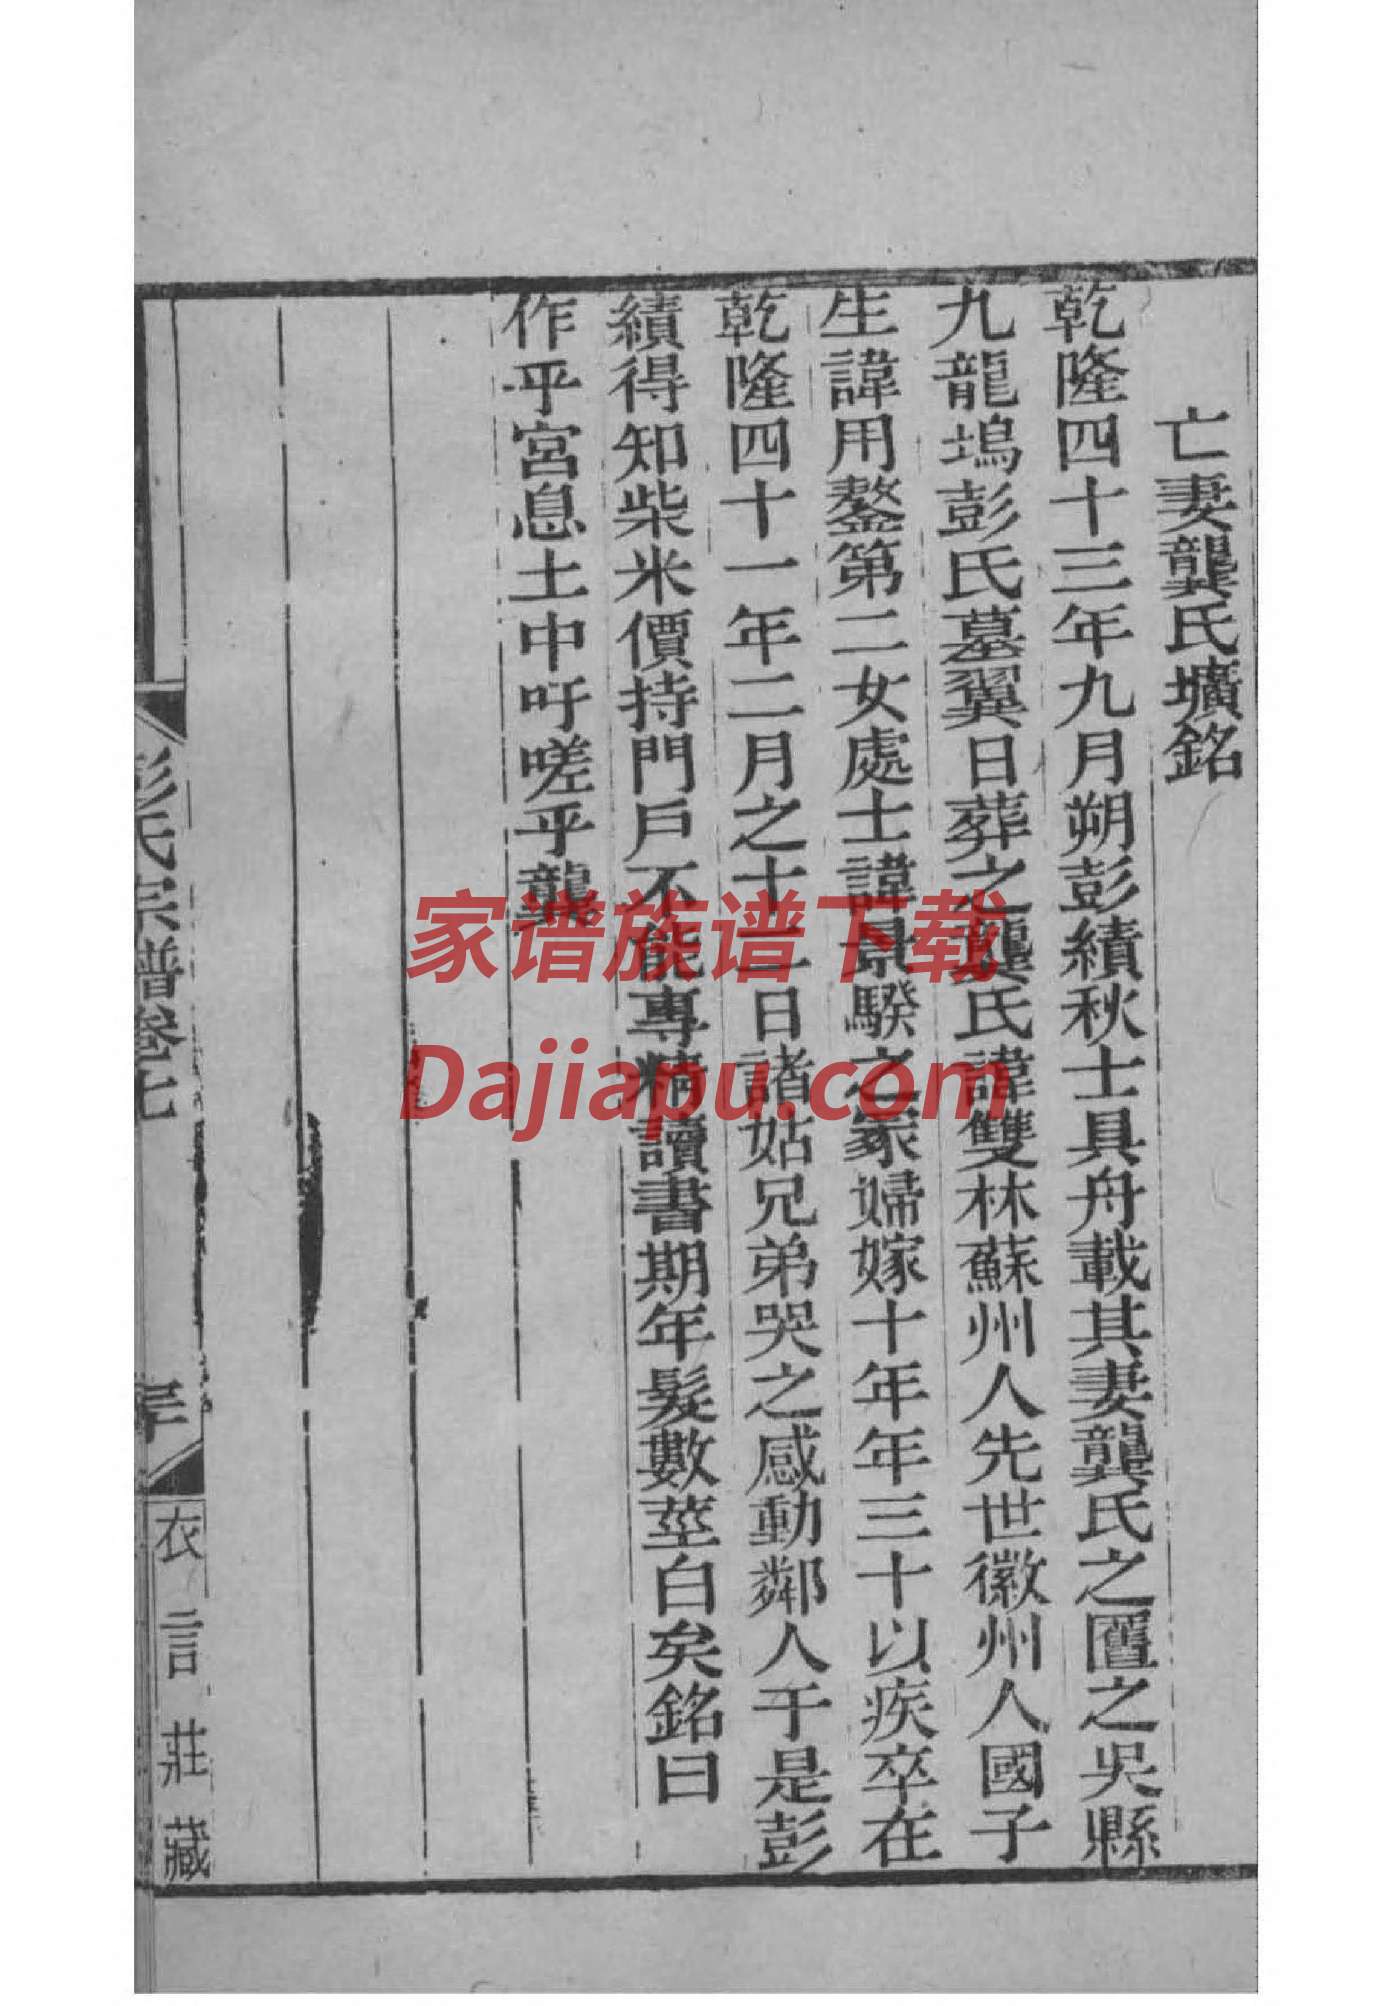 亡妻龔氏壙銘
乾隆四十三年九月朔彭績秋士具舟載其妻龔氏之匶之吳縣
九龍塢彭氏墓翼日葬之龔氏諱雙林蘇州人先世徽州人國子
生諱用鏊第二女處士諱景騤之冢婦嫁十年年三十以疾卒在
乾隆四十一年二月之十二日諸姑兄弟哭之感動鄰人于是彭
績得知柴米價持門戶不能專精讀書期年髮數莖白矣銘曰
作乎宮息土中吁嗟乎龔
彭氏宗譜卷七
三十
衣言莊藏
家谱族谱下载
Dajiapu.com